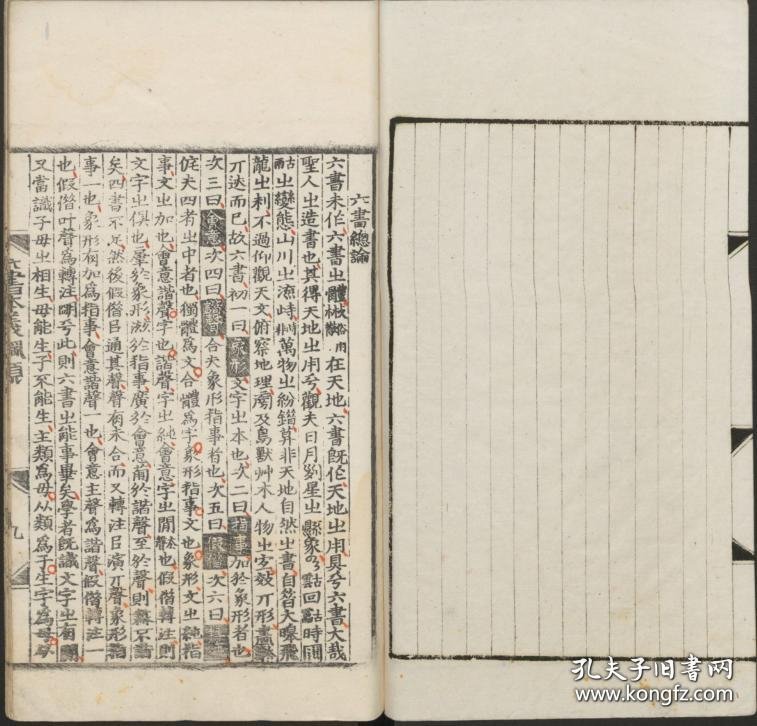 六書總論
六書未作六書㞢體 在天地六書旣作天地㞢用具兮六書大哉
聖人㞢造書也其得天地㞢用兮觀夫日月列星㞢縣象 回 時
㞢變態山川㞢流峙 萬物㞢紛錯莫非天地自然㞢書自昔大皥飛
龍㞢利不過仰觀天文俯察地理旁及鳥獸艸木人物㞢宜效丌形畫
丌迹而已故六書初一曰象形文字㞢本也次二曰指事加於象形者也
次三曰會意次四曰諧聲合夫象形指事者也次五曰假借次六曰
侂夫四者㞢中者也獨體爲文合體爲字象形指事文也象形文㞢純指
事文㞢加也會意諧聲字也諧聲字㞢純會意字㞢閒 也假借轉注則
文字㞢俱也肇於象形滋於指事廣於會意葡於諧聲至於聲則無不諧
矣四書不足然後假借㠯通其聲聲有未合而又轉注㠯演丌聲象形指
事一也象形有加爲指事會意諧聲一也會意主聲爲諧聲假借轉注一
也假借叶聲爲轉注明兮此則六書㞢能事畢矣學者旣識文字㞢有
又當識子母㞢相生母能生子不能生主類爲母从類爲子生字爲母
六書本義綱領
九
孔夫子旧书网
www.kongfz.com